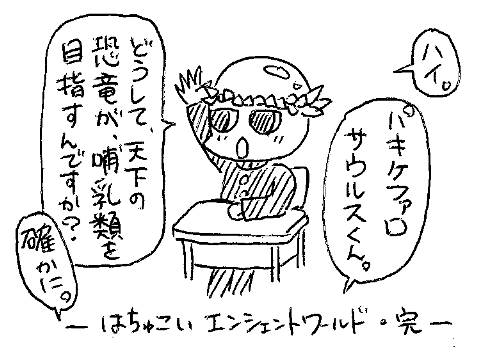 ハイ。
パキケファロ
サウルスくん。
どうして、天下の
恐竜が、哺乳類を
目指すんですか?
確かに。
― はちゅこい エンシェントワールド・完 ―